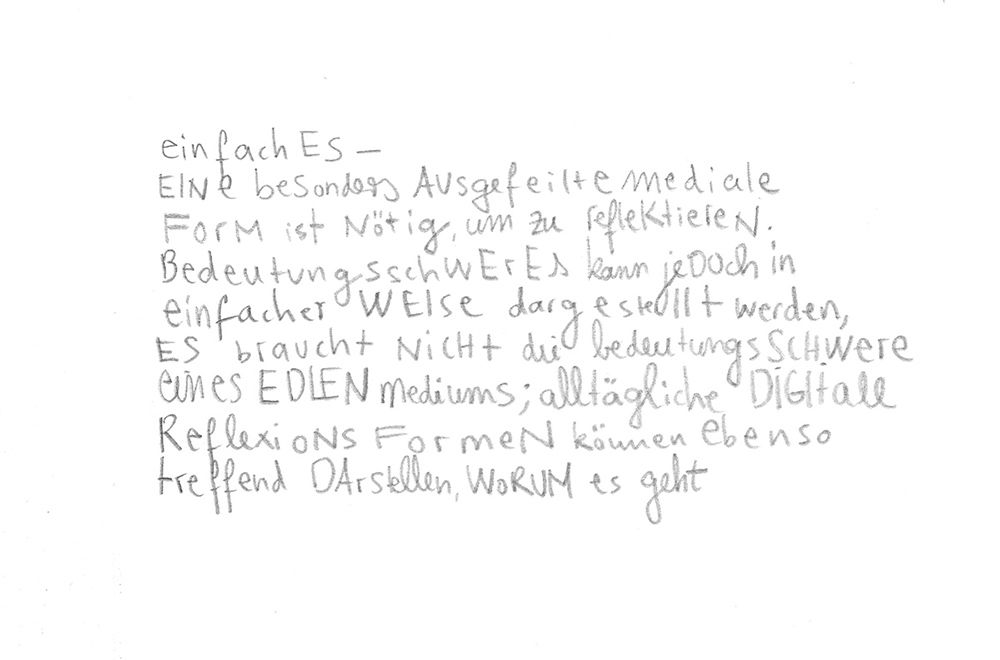 einfach ES –
EINe besonders AUsgefeilte mediale
FOrM ist Nötig, um zu reflektiereN.
BedeutungsschWErEs kann jeDOch in
einfacher WEIse dargestellt werden,
ES braucht NiCHt die bedeutungsSCHwere
eines EDLEN mediums; alltägliche DIGItale
ReflexioNs FormeN können ebenso
treffend DArstellen, WoRUM es geht